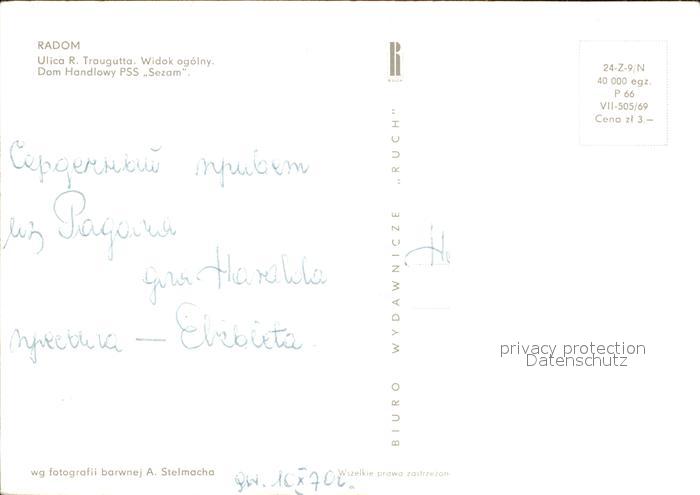 RADOM
Ulica R. Traugutta. Widok ogólny.
Dom Handlowy PSS „Sezam”.
RUCH
24-Z-9/N
40 000 egz.
P 66
VII-505/69
Cena zł 3.—
Сердечный привет
из Радома
для Haralda
— Elżbieta.
BIURO WYDAWNICZE „RUCH”
privacy protection
Datenschutz
wg fotografii barwnej A. Stelmacha
Wszelkie prawa zastrzeżon